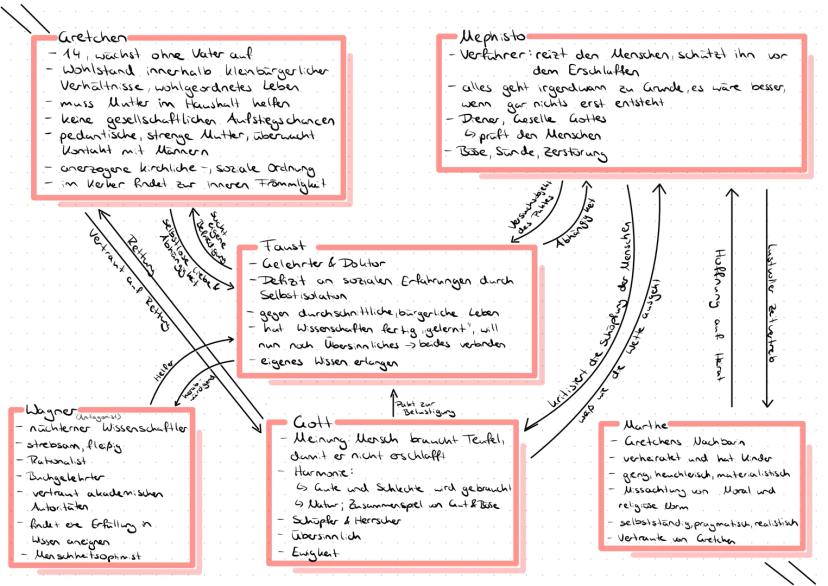 Gretchen
- 14, wächst ohne Vater auf
- Wohlstand innerhalb kleinbürgerlicher
Verhältnisse, wohlgeordnetes Leben
- muss Mutter im Haushalt helfen
- keine gesellschaftlichen Aufstiegschancen
- pedantische, strenge Mutter, überwacht
Kontakt mit Männern
- anerzogene kirchliche -, soziale Ordnung
- im Kerker findet zur inneren Frömmigkeit
Mephisto
- Verführer: reizt den Menschen, schützt ihn vor
dem Erschlaffen
- alles geht irgendwann zu Grunde, es wäre besser,
wenn gar nichts erst entsteht
- Diener, Geselle Gottes
↳ prüft den Menschen
- Böse, Sünde, Zerstörung
Rettung
Vertraut auf Rettung
selbstlose Liebe &
Abhängigkeit
sucht
eigene
Befriedigung
Versuchsobjekt
des Paktes
Abhängigkeit
kritisiert die Schöpfung der Menschen
weiß wie die Wette ausgeht
Hoffnung auf Heirat
lustvoller Zeitvertreib
Faust
- Gelehrter & Doktor
- Defizit an sozialen Erfahrungen durch
Selbstisolation
- gegen durchschnittliche, bürgerliche Leben
- hat Wissenschaften fertig "gelernt", will
nun noch Übersinnliches → beides verbinden
- eigenes Wissen erlangen
Helfer
herab-
würdigend
Pakt zur
Belustigung
Wagner (Antagonist)
- nüchterner Wissenschaftler
- strebsam, fleißig
- Rationalist
- Buchgelehrter
- vertraut akademischen
Autoritäten
- findet die Erfüllung in
Wissen aneignen
- Menschheitsoptimist
Gott
- Meinung: Mensch braucht Teufel,
damit er nicht erschlafft
- Harmonie:
↳ Gute und Schlechte wird gebraucht
↳ Natur; Zusammenspiel von Gut & Böse
- Schöpfer & Herrscher
- Übersinnlich
- Ewigkeit
Marthe
- Gretchens Nachbarin
- verheiratet und hat Kinder
- geng, heuchlerisch, materialistisch
- Missachtung von Moral und
religiöse Norm
- selbstständig, pragmatisch, realistisch
- Vertraute von Gretchen